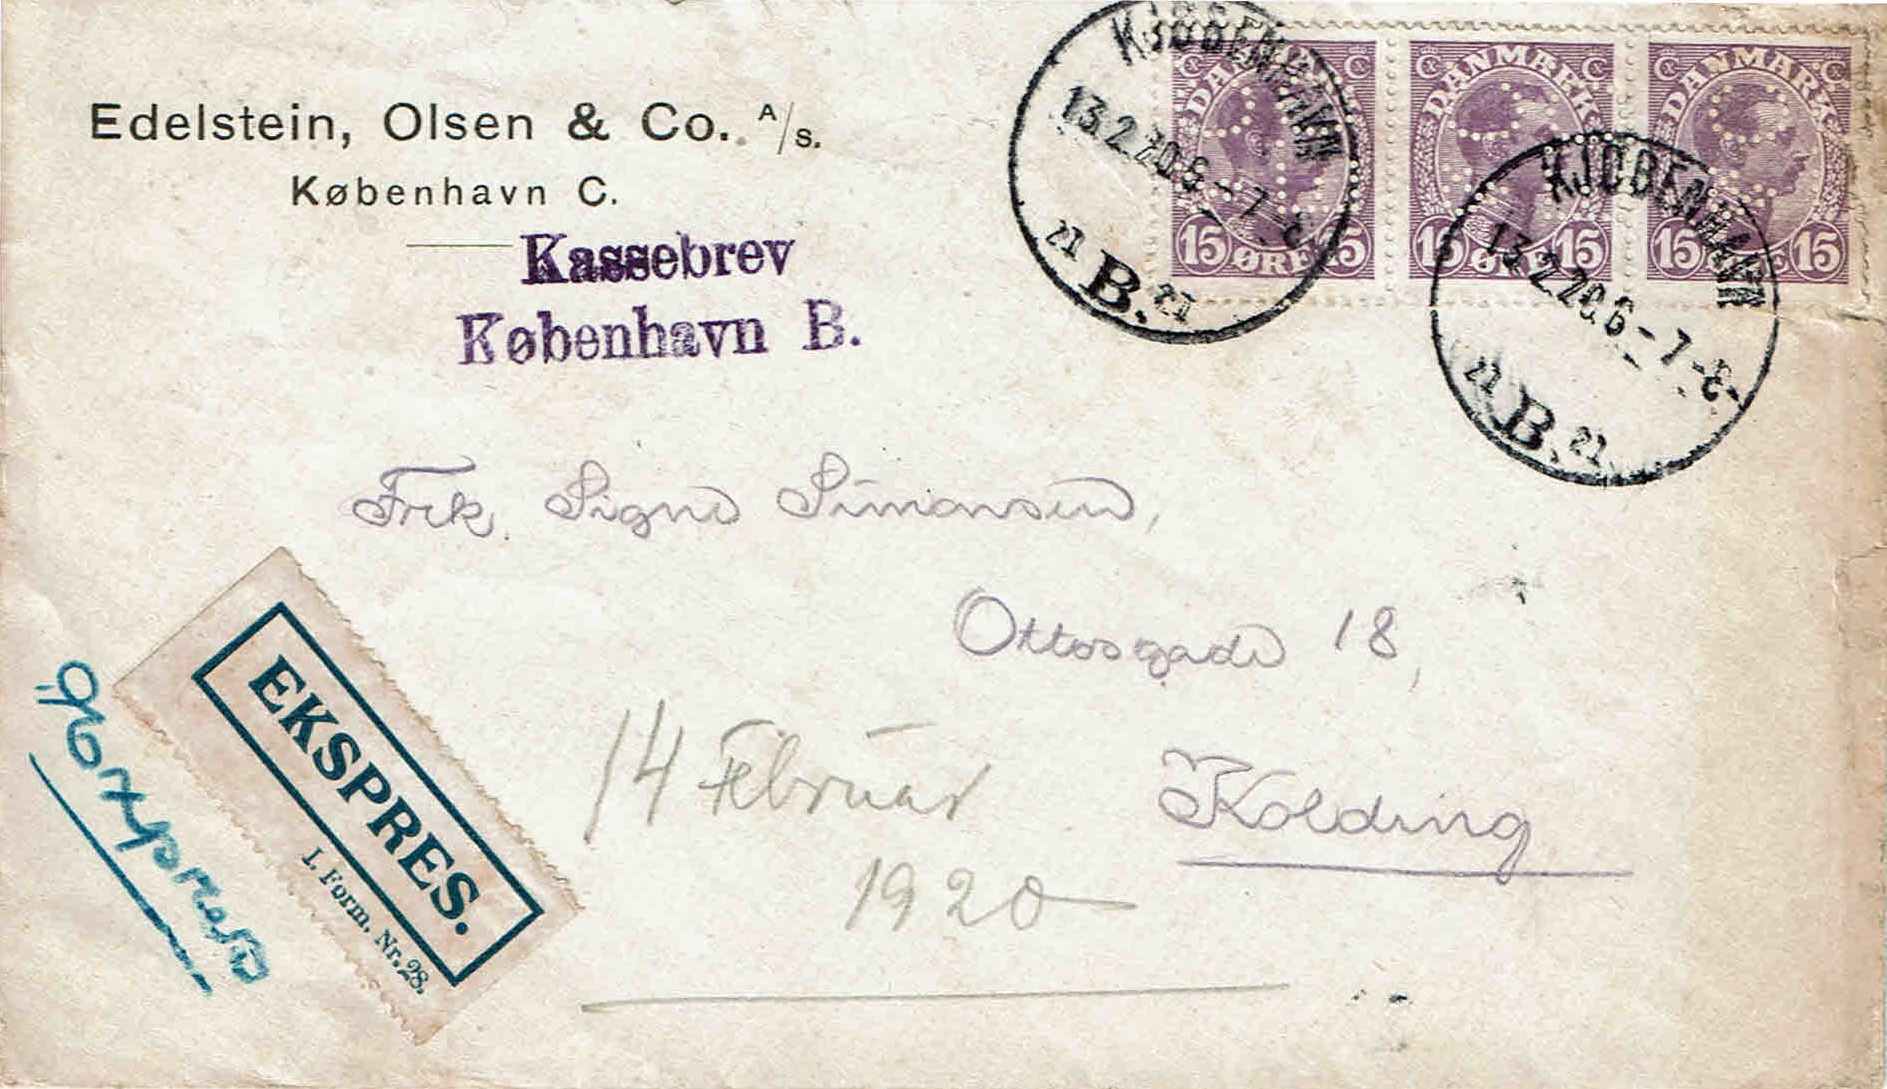 Edelstein, Olsen & Co. A/s.
København C.
Kassebrev
København B.
KJØBENHAVN
13.2.20.6-7-E-
21 B. 21
DANMARK
15 ØRE 15
DANMARK
15 ØRE 15
DANMARK
15 ØRE 15
KJØBENHAVN
13.2.20.6-7-E-
21 B. 21
Frk. Signe Simonsen,
Ottosgade 18,
Kolding
14 Februar
1920
EKSPRES.
I. Form. Nr. 28.